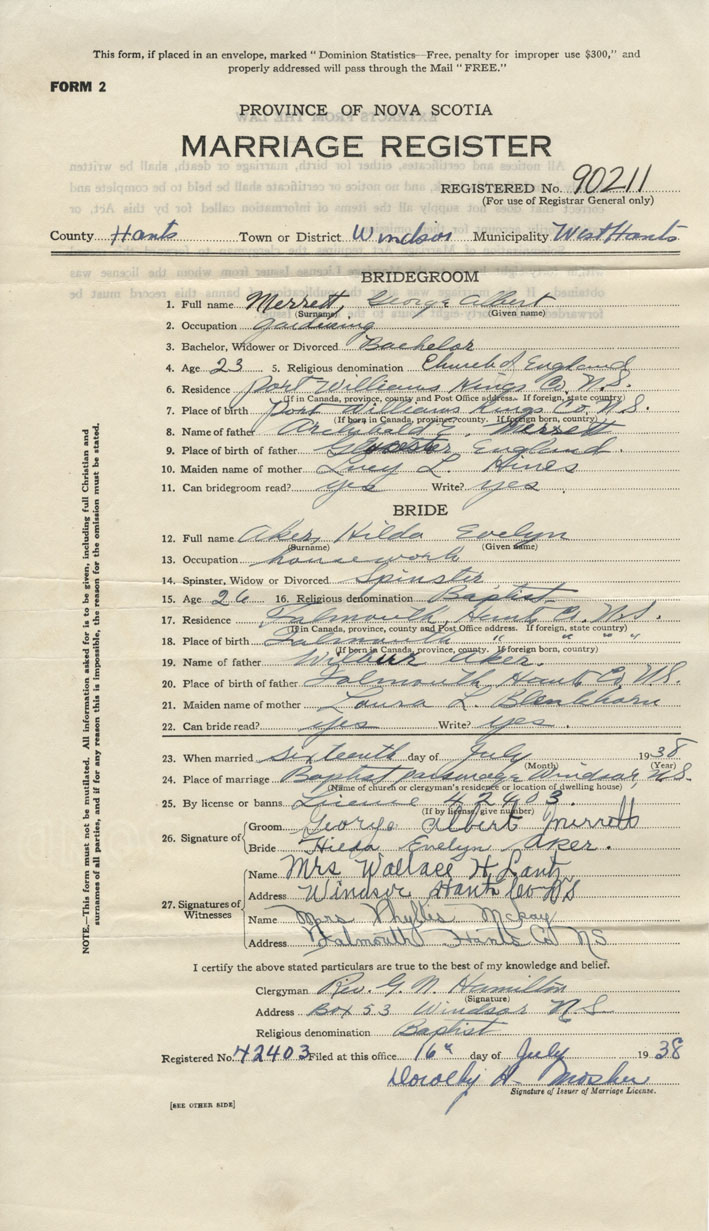 This form, if placed in an envelope, marked "Dominion Statistics—Free, penalty for improper use $300," and
properly addressed will pass through the Mail "FREE."
FORM 2
PROVINCE OF NOVA SCOTIA
MARRIAGE REGISTER
REGISTERED No. 90211
(For use of Registrar General only)
County Hants Town or District Windsor Municipality West Hants
BRIDEGROOM
1. Full name Merrett, George Albert
(Surname) (Given name)
2. Occupation Gardening
3. Bachelor, Widower or Divorced Bachelor
4. Age 23 5. Religious denomination Church of England
6. Residence Port Williams Kings Co. N.S.
(If in Canada, province, county and Post Office address. If foreign, state country)
7. Place of birth Port Williams Kings Co. N.S.
(If born in Canada, province, county. If foreign born, country)
8. Name of father Archibald E. Merrett
9. Place of birth of father England
10. Maiden name of mother Lucy L. Hines
11. Can bridegroom read? yes Write? yes
BRIDE
12. Full name Aker, Hilda Evelyn
(Surname) (Given name)
13. Occupation housework
14. Spinster, Widow or Divorced Spinster
15. Age 26 16. Religious denomination Baptist
17. Residence Falmouth, Hants Co. N.S.
(If in Canada, province, county and Post Office address. If foreign, state country)
18. Place of birth Falmouth " " " "
(If born in Canada, province, county. If foreign born, country)
19. Name of father Aker.
20. Place of birth of father Falmouth, Hants Co. N.S.
21. Maiden name of mother Laura L. Blenkhorn
22. Can bride read? yes Write? yes.
23. When married sixteenth day of July 1938
(Month) (Year)
24. Place of marriage Baptist parsonage Windsor, N.S.
(Name of church or clergyman's residence or location of dwelling house)
25. By license or banns License 42403.
(If by license, give number)
26. Signature of
Groom George Albert Merrett
Bride Hilda Evelyn Aker.
27. Signatures of Witnesses
Name Mrs Wallace H. Lantz
Address Windsor Hants Co NS
Name Mrs Phyllis McKay
Address Falmouth Hants Co NS
I certify the above stated particulars are true to the best of my knowledge and belief.
Clergyman Rev. G. N. Hamilton
(Signature)
Address Box 53 Windsor N.S.
Religious denomination Baptist
Registered No. 42403 Filed at this office 16th day of July 1938
Dorothy H. Mosher
Signature of Issuer of Marriage License.
[SEE OTHER SIDE]
NOTE.—This form must not be mutilated. All information asked for is to be given, including full Christian and
surnames of all parties, and if for any reason this is impossible, the reason for the omission must be stated.